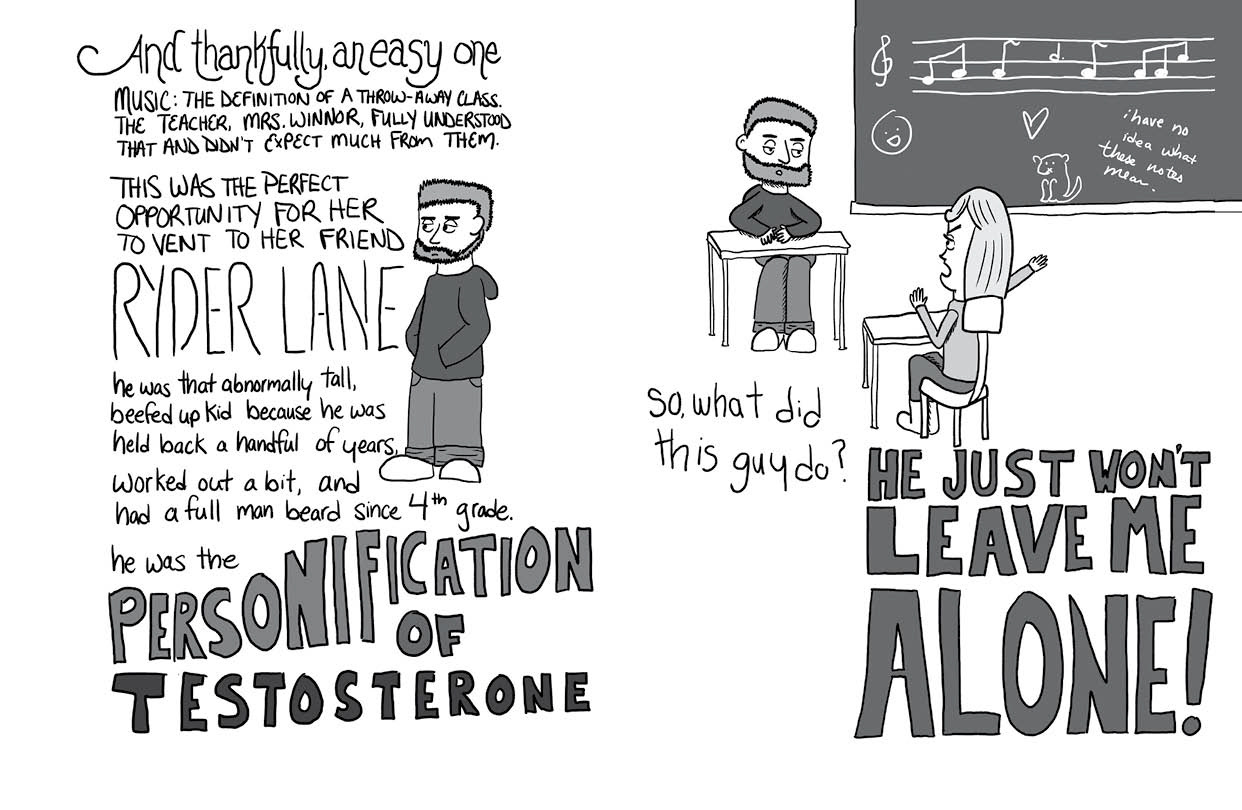 And thankfully, an easy one
MUSIC: THE DEFINITION OF A THROW-AWAY CLASS.
THE TEACHER, MRS. WINNOR, FULLY UNDERSTOOD
THAT AND DIDN'T EXPECT MUCH FROM THEM.
THIS WAS THE PERFECT
OPPORTUNITY FOR HER
TO VENT TO HER FRIEND
RYDER LANE
he was that abnormally tall,
beefed up kid because he was
held back a handful of years,
worked out a bit, and
had a full man beard since 4th grade.
he was the
PERSONIFICATION
OF
TESTOSTERONE
i have no
idea what
these notes
mean.
So, what did
this guy do?
HE JUST WON'T
LEAVE ME
ALONE!